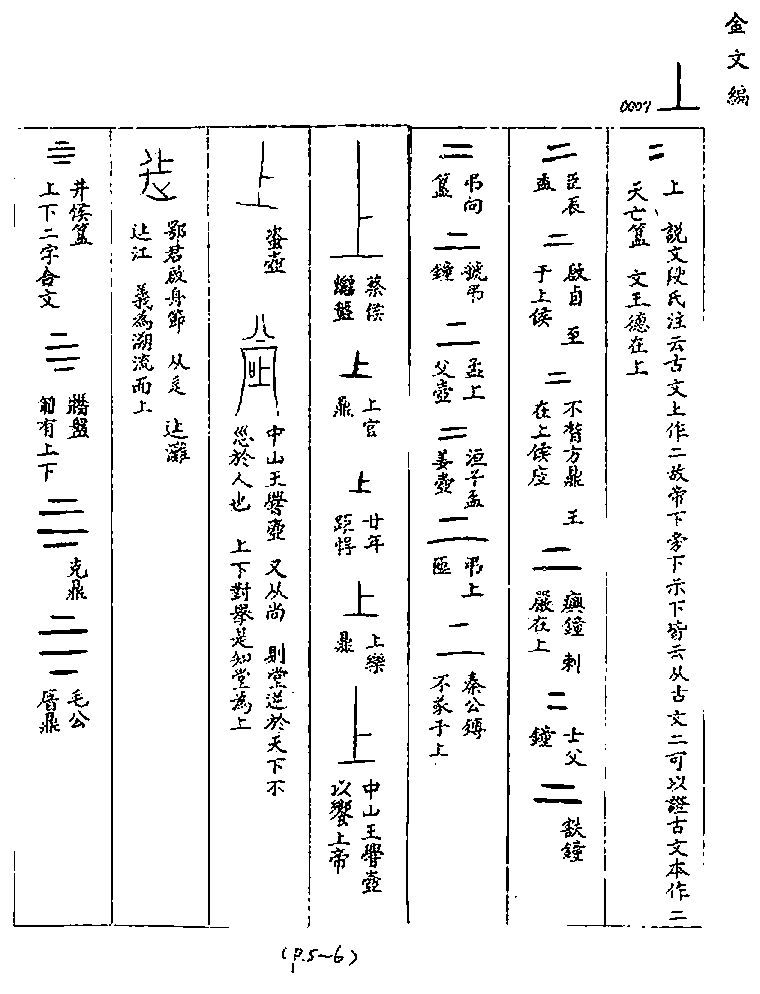 金文編
上
0007
二 上 說文段氏注云古文上作二故帝下旁下示下皆云从古文二可以證古文本作二
天亡簋 文王德在上
二 臣辰盉
二 啟卣 至于上侯
二 不𢍰方鼎 王在上侯应
二 𤼈鐘 剌嚴在上
二 士父鐘
二 㝬鐘
二 弔向簋
二 虢弔鐘
二 孟上父壺
二 洹子孟姜壺
二 弔上匜
二 秦公鎛 不㒸于上
上 蔡侯盤
上 上官鼎
上 廿年距悍
上 上樂鼎
上 中山王壺 以饗上帝
上 𧊒壺
中山王壺 又从尚 則堂逆於天下不
於人也 上下對舉是知堂為上
鄂君啟舟節 从辵 灘
江 義為溯流而上
井侯簋
上下二字合文
牆盤 匍有上下
克鼎
毛公厝鼎
(P.5~6)